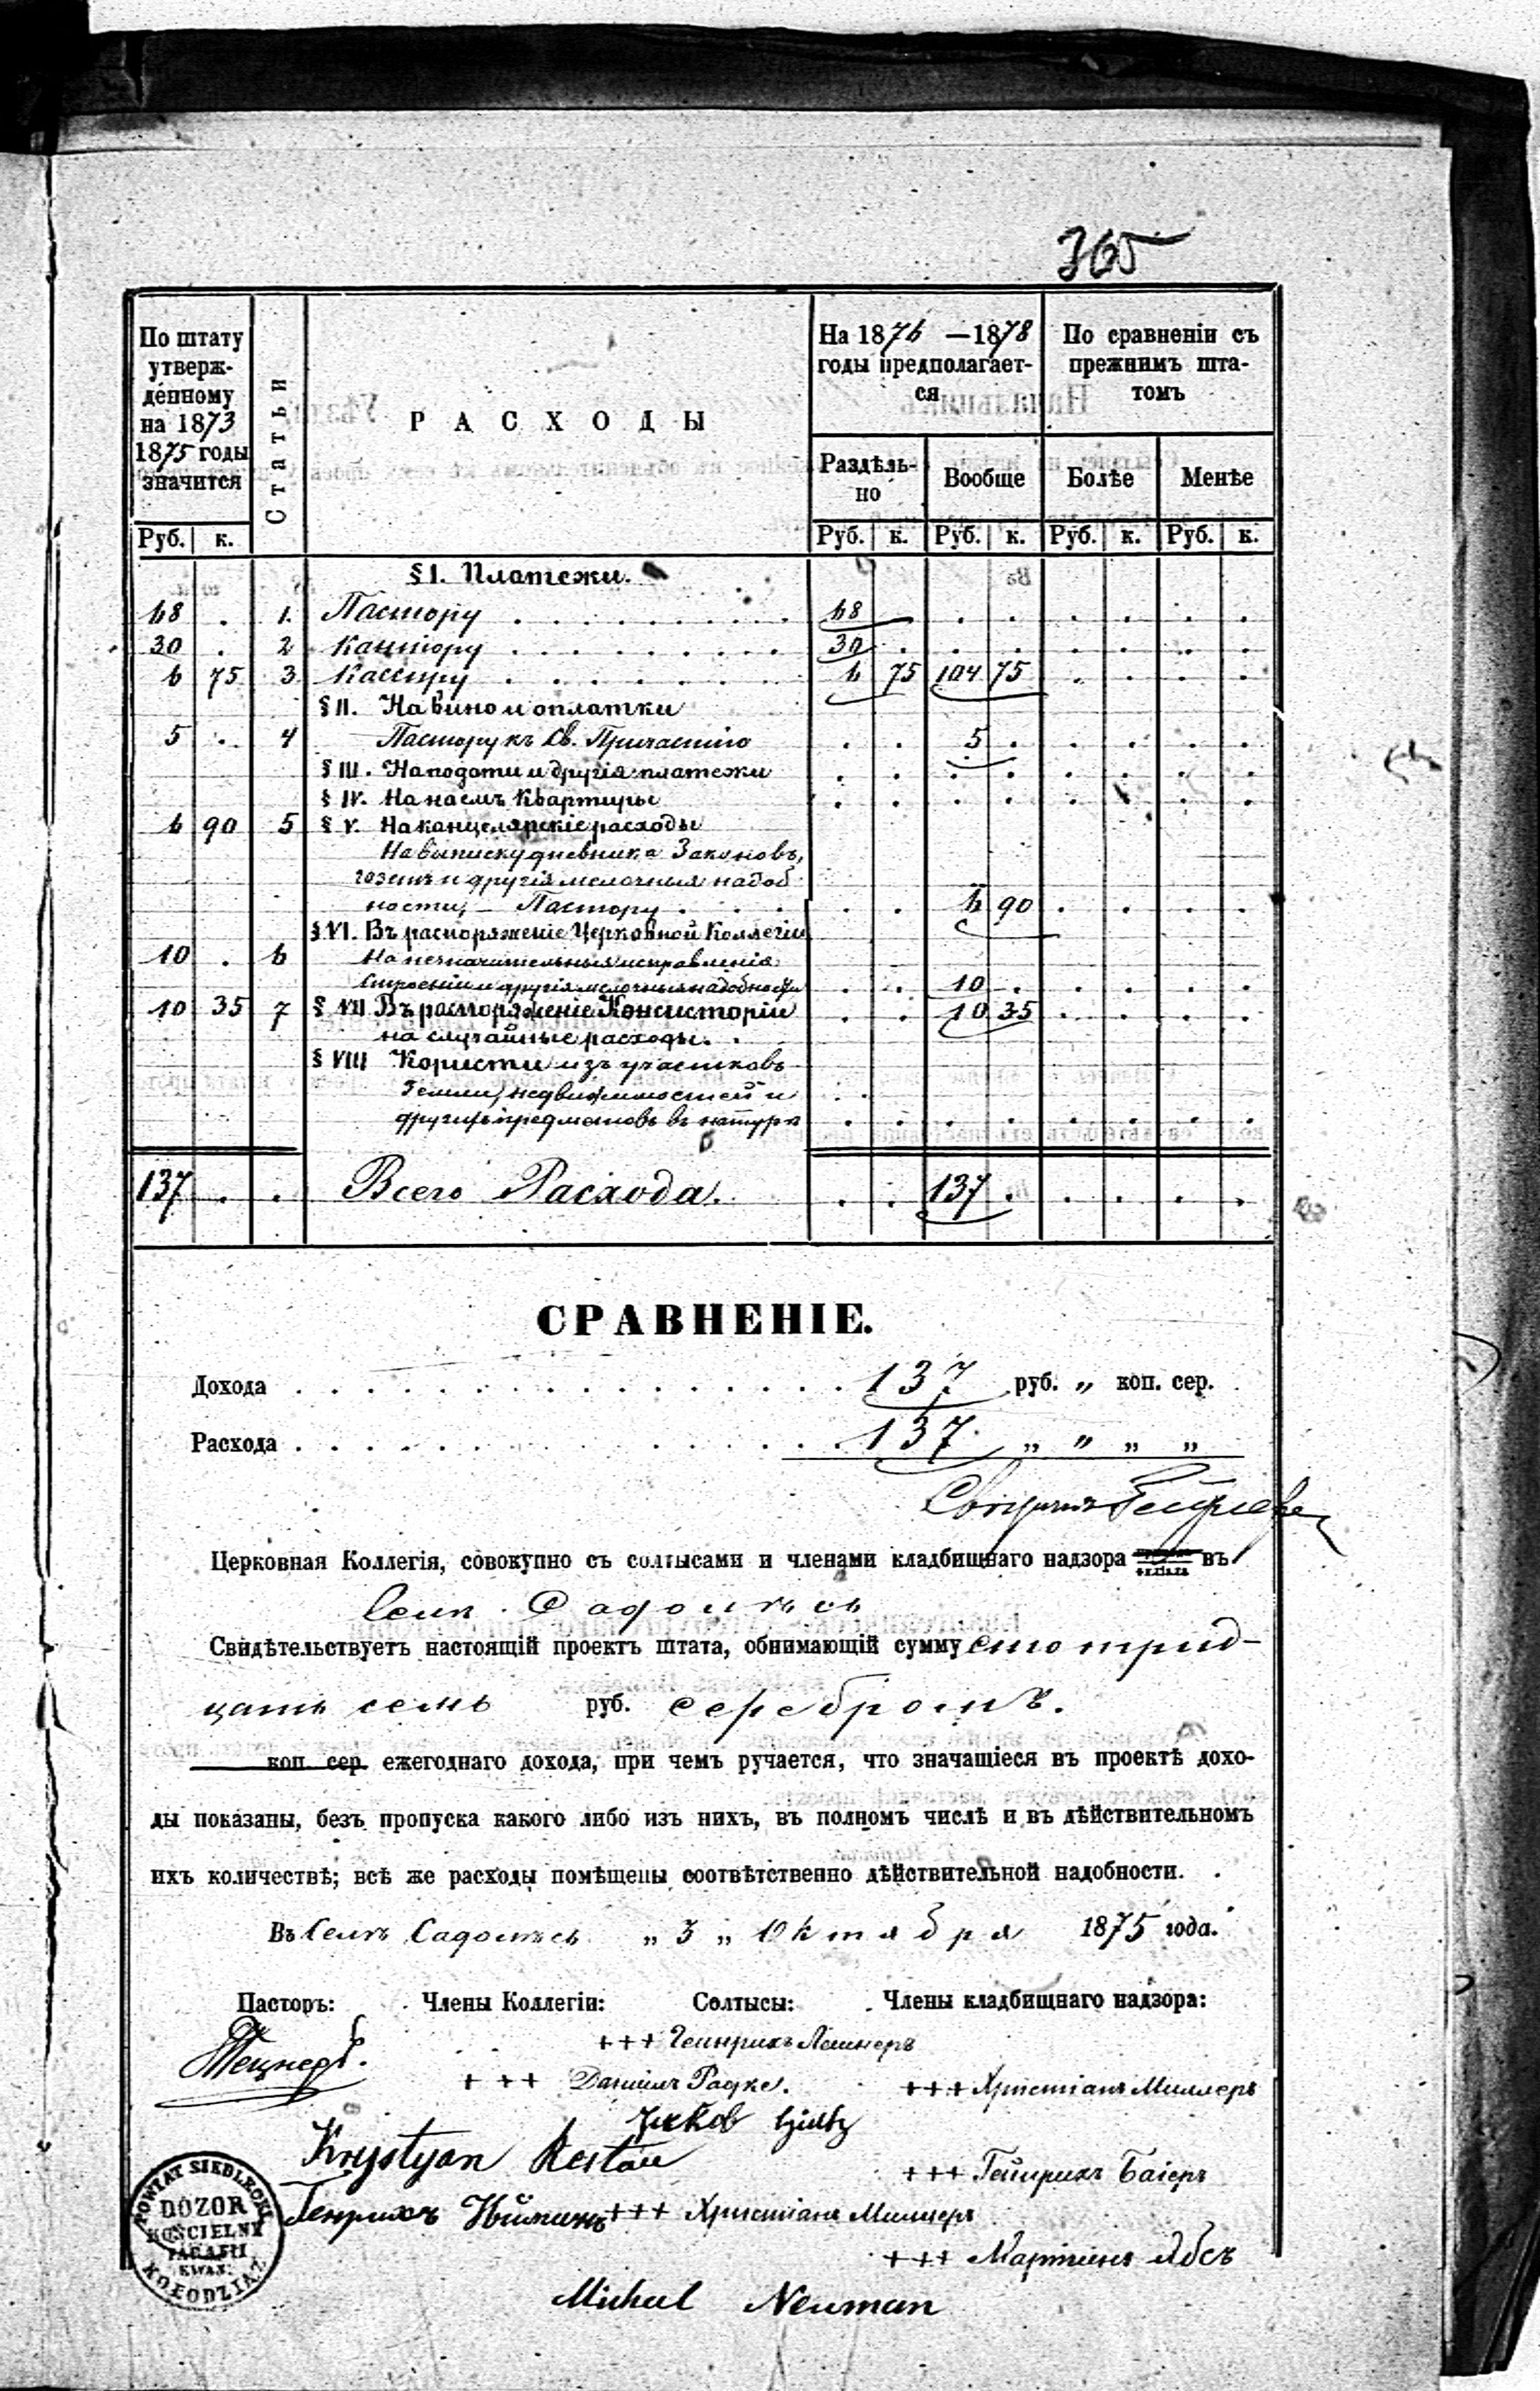 365
По штату утверж-денному на 1873 1875 годы значится | Статьи | РАСХОДЫ | На 1876 — 1878 годы предполагает-ся | По сравненiи съ прежнимъ шта-томъ
Раздѣль-но | Вообще | Болѣе | Менѣе
Руб. | к. | Руб. | к. | Руб. | к. | Руб. | к. | Руб. | к.
§ I. Платежи.
68 . 1. Пастору . . . . . . . . 68 . . . . . . .
30 . 2 Кантору . . . . . . . . 30 . . . . . . .
6 75 3 Кассиру . . . . . . . 6 75 104 75 . . . .
§ II. На вино и оплатки
5 . 4 Пастору къ Св. Причастiю . . 5 . . . . .
§ III. На подати и другiя платежи . . . . . . . .
§ IV. На наемъ квартиры . . . . . . . .
6 90 5 § V. На канцелярскiе расходы
На выписку дневника Законовъ,
газетъ и другiя мелочныя надоб
ности, — Пастору . . . . . . 6 90 . . . .
§ VI. Въ распоряженiе Церковной Коллегiи
10 . 6 На незначительныя исправленiя
строенiй и другiя мелочныя надобности . . 10 . . . . .
10 35 7 § VII Въ распоряженiе Консисторiи . . 10 35 . . . .
на случайные расходы. .
§ VIII Користи изъ участковъ
Земли, недвижимостей и . .
другихъ предметовъ въ натурѣ . . . . . . . .
137 . . Всего Расхода. . . 137 . . . . .
СРАВНЕНIЕ.
Дохода . . . . . . . . . . . . . . 137 руб. „ коп. сер.
Расхода . . . . . . . . . . . . . . 137 „ „ „ „
Церковная Коллегiя, совокупно съ солтысами и членами кладбищнаго надзора филiала въ
Селѣ Садолѣсь
Свидѣтельствуетъ настоящiй проектъ штата, обнимающiй сумму сто трид-
цать семь руб. серебромъ.
коп. сер. ежегоднаго дохода, при чемъ ручается, что значащiеся въ проектѣ дохо-
ды показаны, безъ пропуска какого либо изъ нихъ, въ полномъ числѣ и въ дѣйствительномъ
ихъ количествѣ; всѣ же расходы помѣщены соотвѣтственно дѣйствительной надобности.
Въ Селѣ Садолѣсь „ 3 „ Октября 1875 года.
Пасторъ: Члены Коллегiи: Солтысы: Члены кладбищнаго надзора:
+++ Генрихъ Лешнеръ
Тецнеръ.
+++ Данiилъ Радке. +++ Христiанъ Миллеръ
Jakob
Krystyan Restau +++ Генрихъ Баiеръ
Генрихъ Нейманъ +++ Христiанъ Миллеръ
+++ Мартинъ Ябсъ
Michael Neuman
POWIAT SIEDLECKI
DOZOR
KOŚCIELNY
PARAFII
EWAN.
KOŁODZIĄŻ